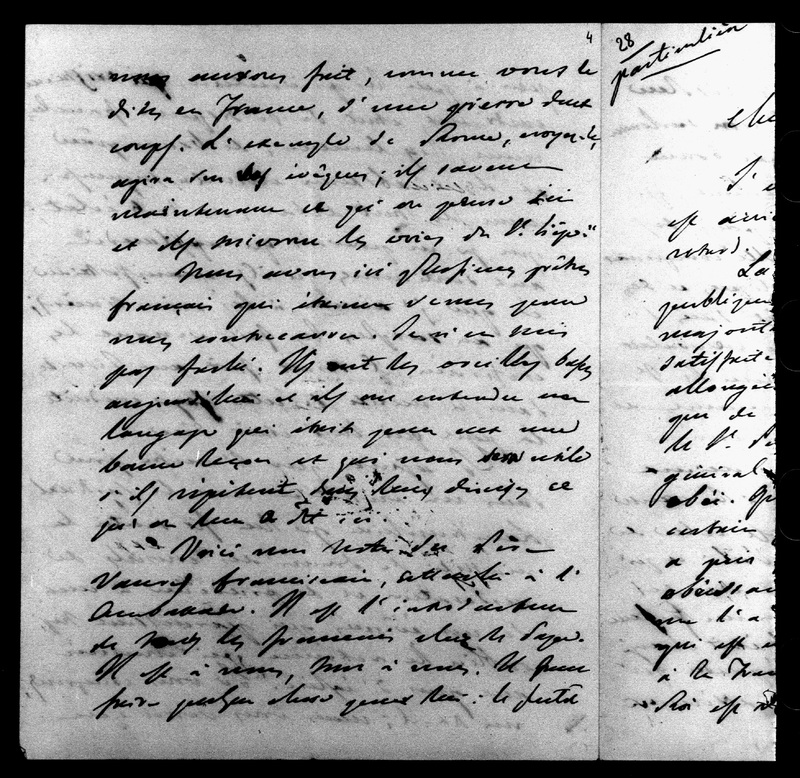 4
nous aurons fait, comme vous le
dites en France, d'une pierre deux
coups. L'exemple de Rome, croyez-le,
agira sur les évêques; ils savent
maintenant ce qui on pense ici
et ils suivront les voies du St Siège.
Nous avons ici plusieurs prêtres
français qui étaient venus pour
nous contrecarrer. Ils
pas parlé. Ils ont les oreilles basses
aujourd'hui et ils ont entendu un
langage qui était pour eux une
bonne leçon et qui nous sera utile
s'ils répètent dans leurs diocèses ce
qu'on leur a dit ici.
Voici une note du Père
franciscain, attaché à l'
Ambassade. Il est l'introducteur
de tous les français chez le Pape.
Il est à nous, tout à nous. Il faut
faire quelque chose pour lui: le
28
particulière
J'
est
retard.
La
publique
majorité
satisfaite
que de
le St
général
obéi.
certain
a pris
obéissan
que l'a
qui est
à la Fran
Roi est